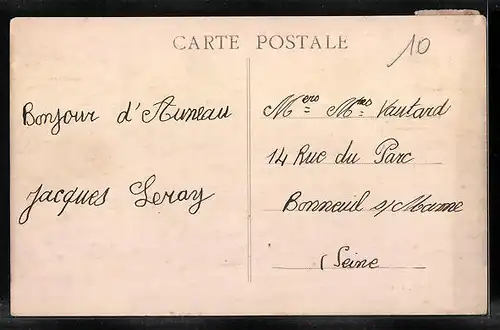 CARTE POSTALE
10
Bonjour d'Auneau
Jacques Leray
Mers Mmes Vautard
14 Rue du Parc
Bonneuil s/Marne
(Seine